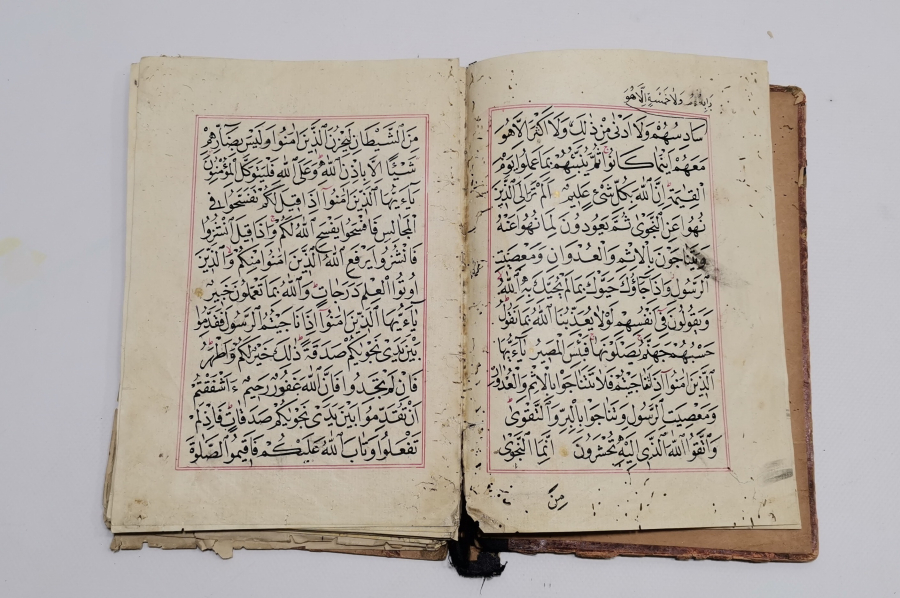 ولا خمسة الا هو
سادسهم ولا ادنى من ذلك ولا اكثر الا هو
معهم اينما كانوا ثم ينبئهم بما عملوا يوم
القيمة ان الله بكل شئ عليم الم تر الى الذين
نهوا عن النجوى ثم يعودون لما نهوا عنه
ويتناجون بالاثم والعدوان ومعصيت
الرسول واذا جاؤك حيوك بما لم يحيك به الله
ويقولون فى انفسهم لولا يعذبنا الله بما نقول
حسبهم جهنم يصلونها فبئس المصير ياءيها
الذين امنوا اذا تناجيتم فلا تتناجوا بالاثم والعدوان
ومعصيت الرسول وتناجوا بالبر والتقوى
واتقوا الله الذى اليه تحشرون انما النجوى
من
من الشيطان ليحزن الذين امنوا وليس بضارهم
شيئا الا باذن الله وعلى الله فليتوكل المؤمنون
ياءيها الذين امنوا اذا قيل لكم تفسحوا فى
المجالس فافسحوا يفسح الله لكم واذا قيل انشزوا
فانشزوا يرفع الله الذين امنوا منكم والذين
اوتوا العلم درجات والله بما تعملون خبير
ياءيها الذين امنوا اذا ناجيتم الرسول فقدموا
بين يدى نجويكم صدقة ذلك خير لكم واطهر
فان لم تجدوا فان الله غفور رحيم ءاشفقتم
ان تقدموا بين يدى نجويكم صدقات فاذ لم
تفعلوا وتاب الله عليكم فاقيموا الصلوة